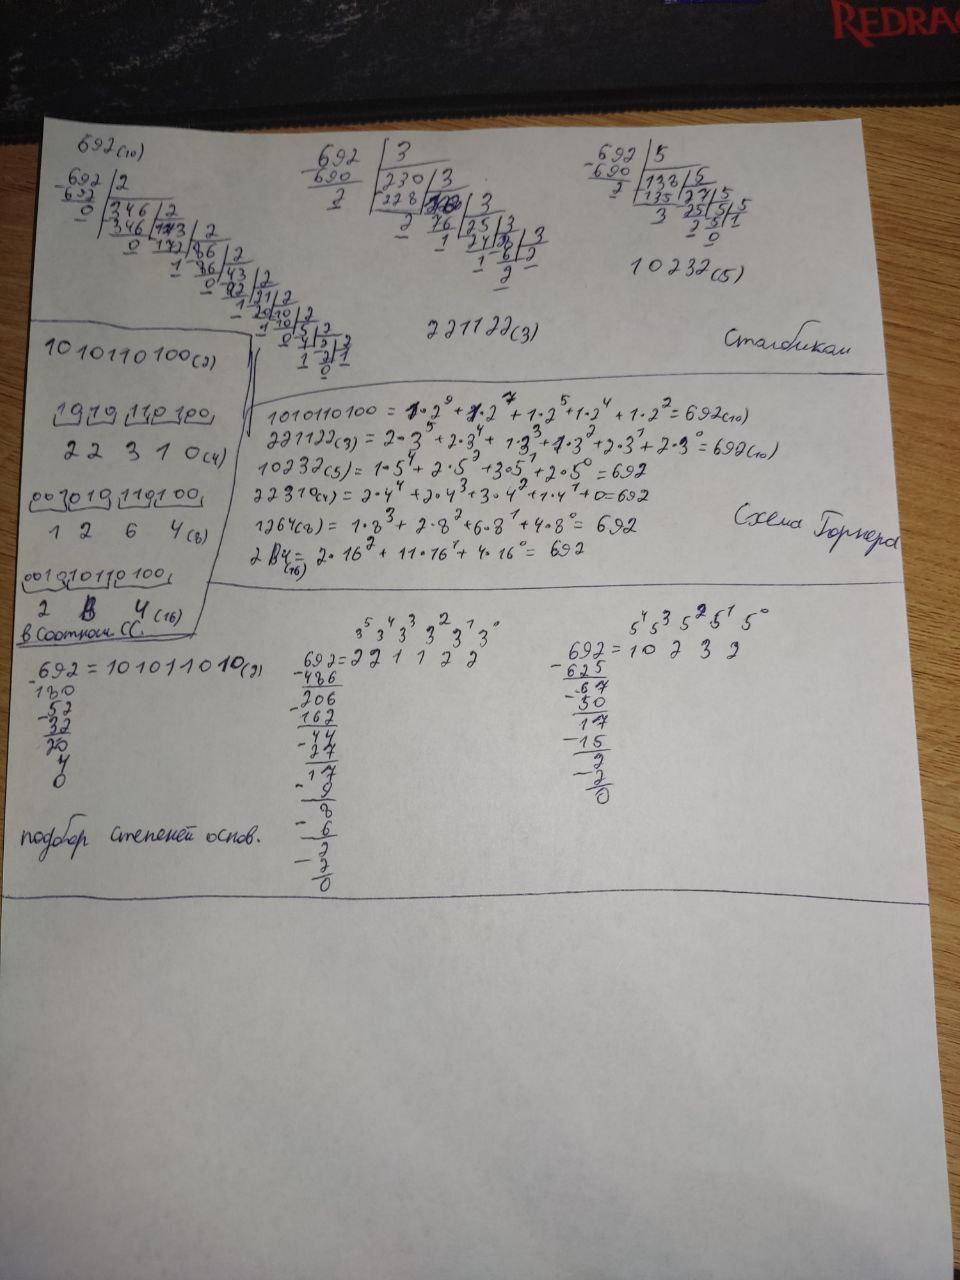 REDRAG
692(10)
692 | 2
692
0
346 | 2
346
0
173 | 2
172
1
86 | 2
86
0
43 | 2
42
1
21 | 2
20
1
10 | 2
10
0
5 | 2
4
1
2 | 2
2
0
1
692 | 3
690
2
230 | 3
228
2
76 | 3
1
25 | 3
24
1
8 | 3
6
2
2
692 | 5
690
2
138 | 5
135
3
27 | 5
25
2
5 | 5
5
0
1
10232(5)
221122(3)
Столбиком
1010110100(2)
1010110100
22310(4)
001010110100
1 2 6 4(8)
001010110100
2 B 4(16)
в соотнош СС.
1010110100 = 1·2⁹ + 1·2⁷ + 1·2⁵ + 1·2⁴ + 1·2² = 692(10)
221122(3) = 2·3⁵ + 2·3⁴ + 1·3³ + 1·3² + 2·3¹ + 2·3⁰ = 692(10)
10232(5) = 1·5⁴ + 2·5² + 3·5¹ + 2·5⁰ = 692
22310(4) = 2·4⁴ + 2·4³ + 3·4² + 1·4¹ + 0 = 692
1264(8) = 1·8³ + 2·8² + 6·8¹ + 4·8⁰ = 692
2B4(16) = 2·16² + 11·16¹ + 4·16⁰ = 692
Схема Горнера
692 = 101011010(2)
-180
52
-32
20
4
0
3⁵ 3⁴ 3³ 3² 3¹ 3⁰
692 = 2 2 1 1 2 2
-486
206
-162
44
-27
17
-9
8
-6
2
-2
0
5⁴ 5³ 5² 5¹ 5⁰
692 = 1 0 2 3 2
-625
67
-50
17
-15
2
-2
0
подбор степеней основ.